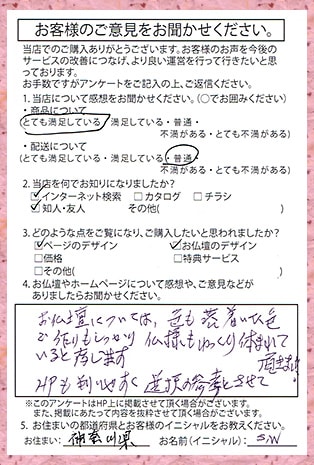 お客様のご意見をお聞かせください。
当店でのご購入ありがとうございます。お客様のお声を今後の
サービスの改善につなげ、より良い運営を行って行きたいと思
っております。
お手数ですがアンケートをご記入の上、ご返信ください。
1. 当店について感想をお聞かせください。(○でお囲みください)
・商品について
(とても満足している・満足している・普通・
不満がある・とても不満がある)
・配送について
(とても満足している・満足している・普通・
不満がある・とても不満がある)
2. 当店を何でお知りになりましたか?
□インターネット検索 □カタログ □チラシ
□知人・友人 その他( )
3. どのような点をご覧になり、ご購入したいと思われましたか?
□ページのデザイン □お仏壇のデザイン
□価格 □特典サービス
□その他( )
4. お仏壇やホームページについて感想や、ご意見などが
ありましたらお聞かせください。
お仏壇については、色も落着いた色
で作りもしっかり 仏様もゆっくり休まれて
いると存じます
HPも判いやすく 選択の参考とさせて
頂きました
※このアンケートはHP上に掲載させて頂く場合がございます。
また、掲載にあたって内容を抜粋させて頂く場合がございます。
5. お住まいの都道府県とお客様のイニシャルをお教えください。
お住まい: 神奈川県 お名前(イニシャル): S.W